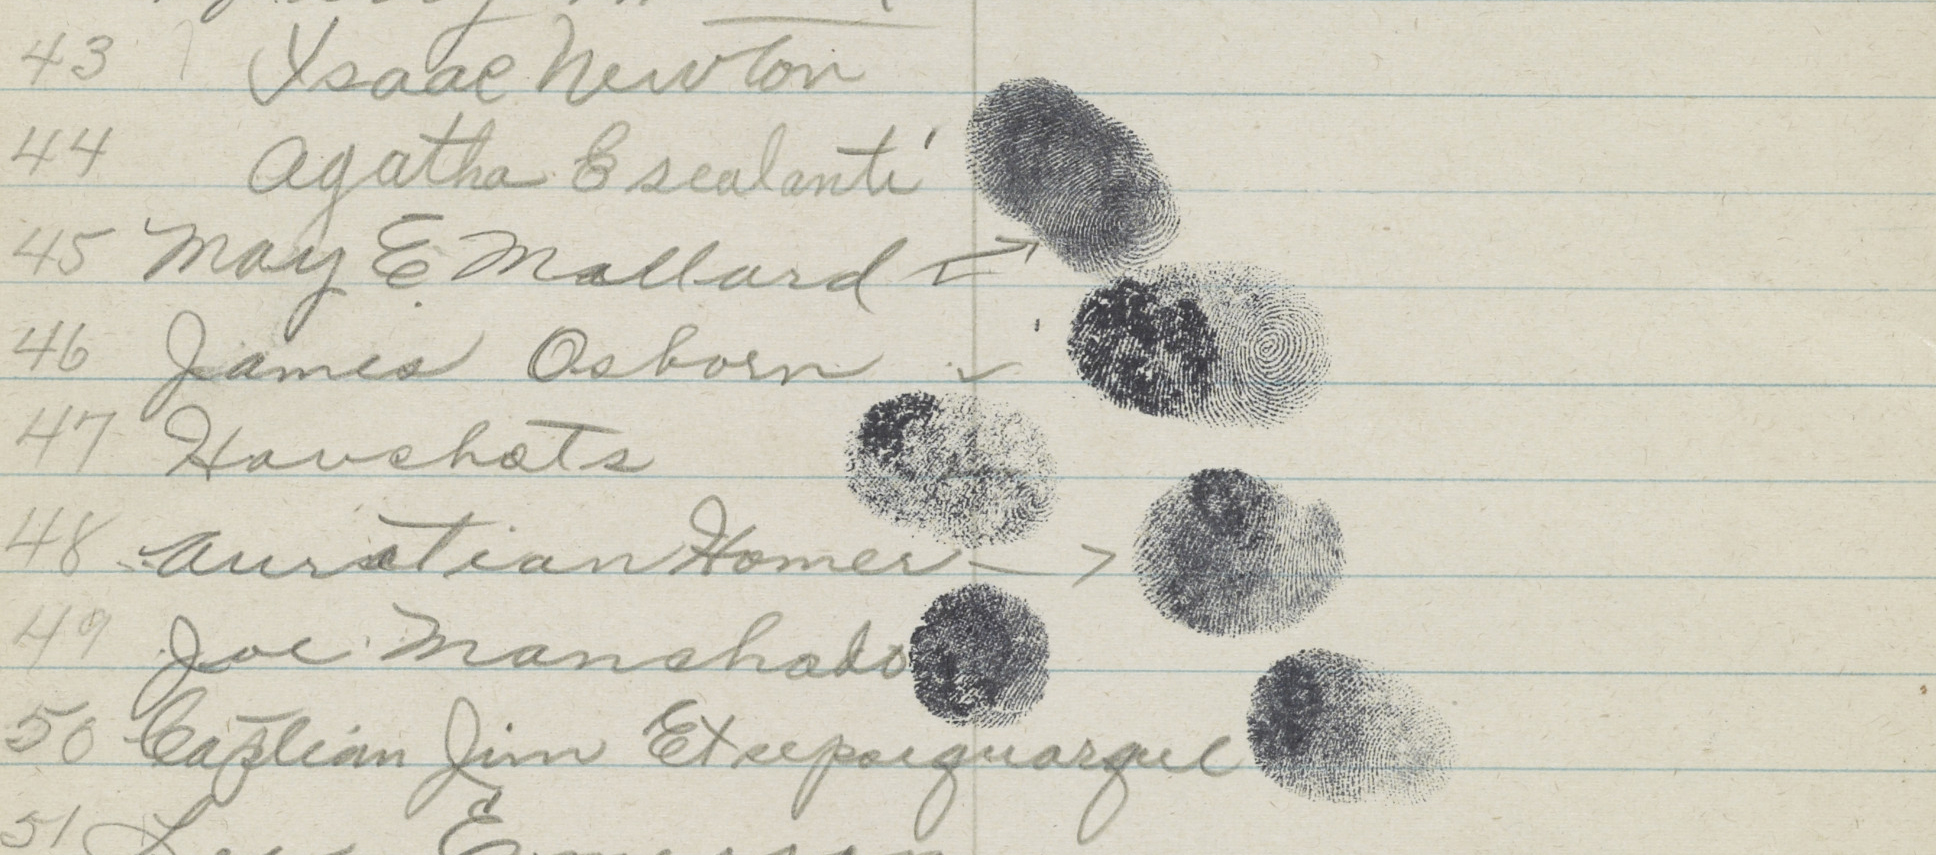 43 Isaac Newton
44 Agatha Escalanti
45 May E Mallard
46 James Osborn
47 Havchats
48 Auratian Homer
49 Joe Manchado
50 Captian Jim
51